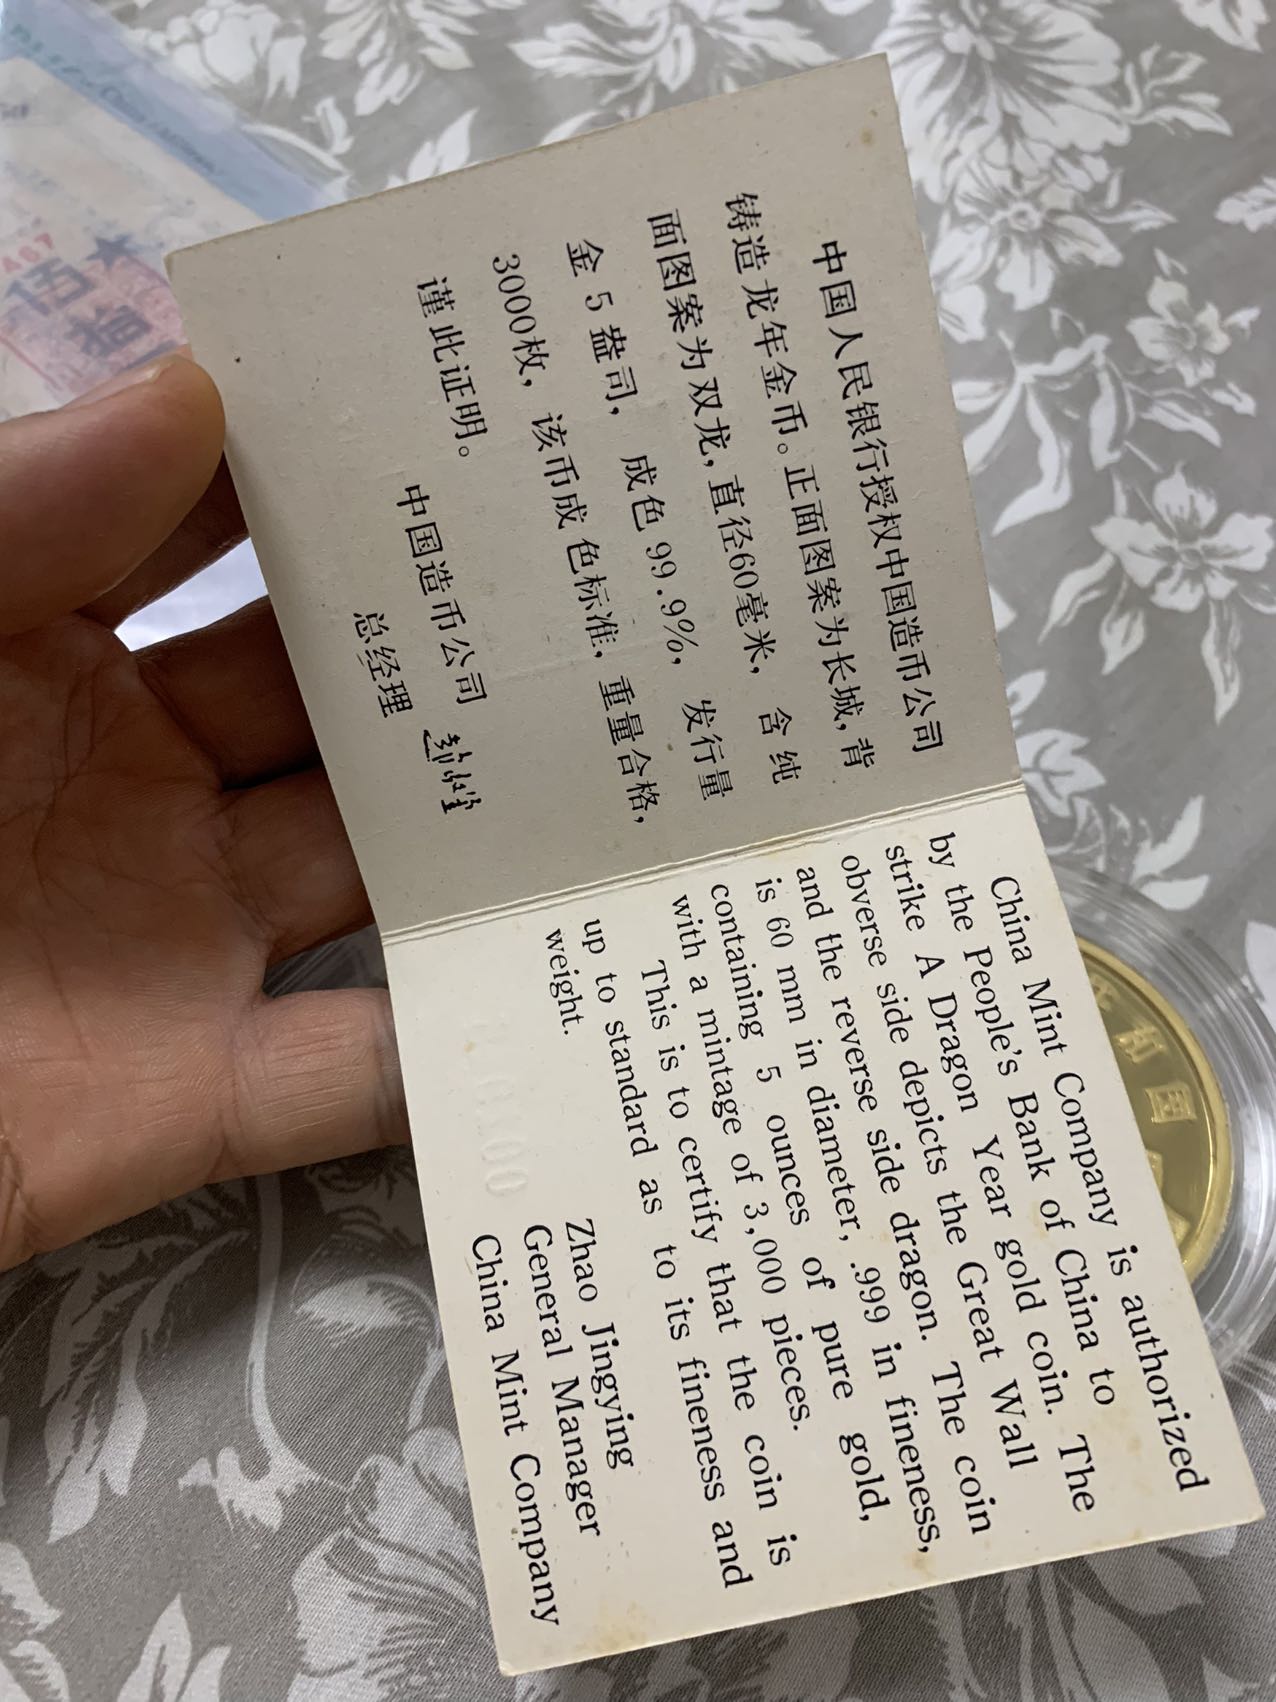 中国人民银行授权中国造币公司
铸造龙年金币。正面图案为长城,背
面图案为双龙,直径60毫米,含纯
金5盎司,成色99.9%,发行量
3000枚,该币成色标准,重量合格,
谨此证明。
中国造币公司
总经理
China Mint Company is authorized
by the People's Bank of China to
strike A Dragon Year gold coin. The
obverse side depicts the Great Wall
and the reverse side dragon. The coin
is 60 mm in diameter, .999 in fineness,
containing 5 ounces of pure gold,
with a mintage of 3,000 pieces.
This is to certify that the coin is
up to standard as to its fineness and
weight.
Zhao Jingying
General Manager
China Mint Company
A67
伍拾
国